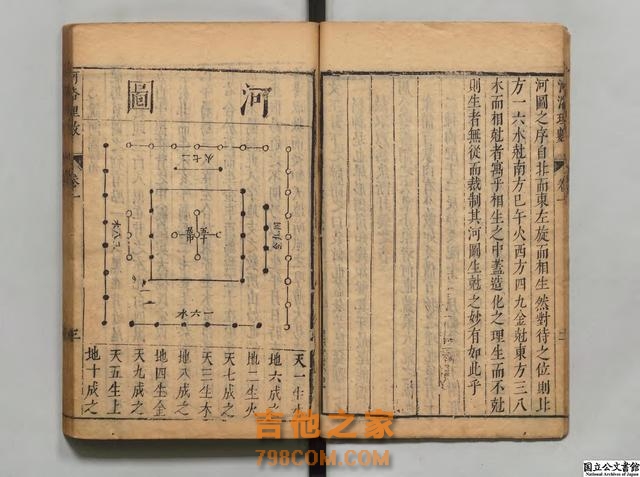 河洛理數
卷一
河圖之序自北而東左旋而相生然對待之位則北
方一六水尅南方巳午火西方四九金尅東方三八
木而相尅者寓乎相生之中蓋造化之理生而不尅
則生者無從而裁制其河圖生尅之妙有如此乎
河圖
火七二
四九金
木八三
一六水
天一生水
地六成之
地二生火
天七成之
天三生木
地八成之
地四生金
天九成之
天五生土
地十成之
河洛理數
卷一
三
吉他之家
798COM.COM
国立公文書館
National Archives of Japan